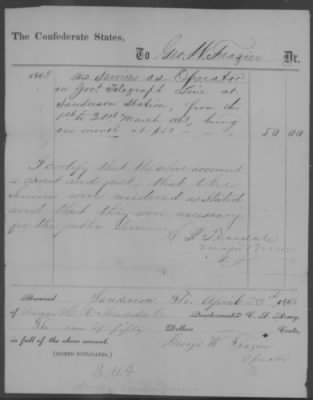 The Confederate States,
To Geo. W. Frazier Dr.
1863 To Services as Operator
on Govt. Telegraph Line at
Sanderson Station, from the
1st to 31st March 1863, being
one month at $50 50 00
I certify that the above account
is correct and just, that the
Services were rendered as stated
and that they were necessary
for the public Service
Major
Received Sanderson Fla. April 1863
of Major Teasdale Quartermaster C. S. Army,
the sum of fifty Dollars Cents,
in full of the above account. George W. Frazier
(SIGNED DUPLICATES.) Operator